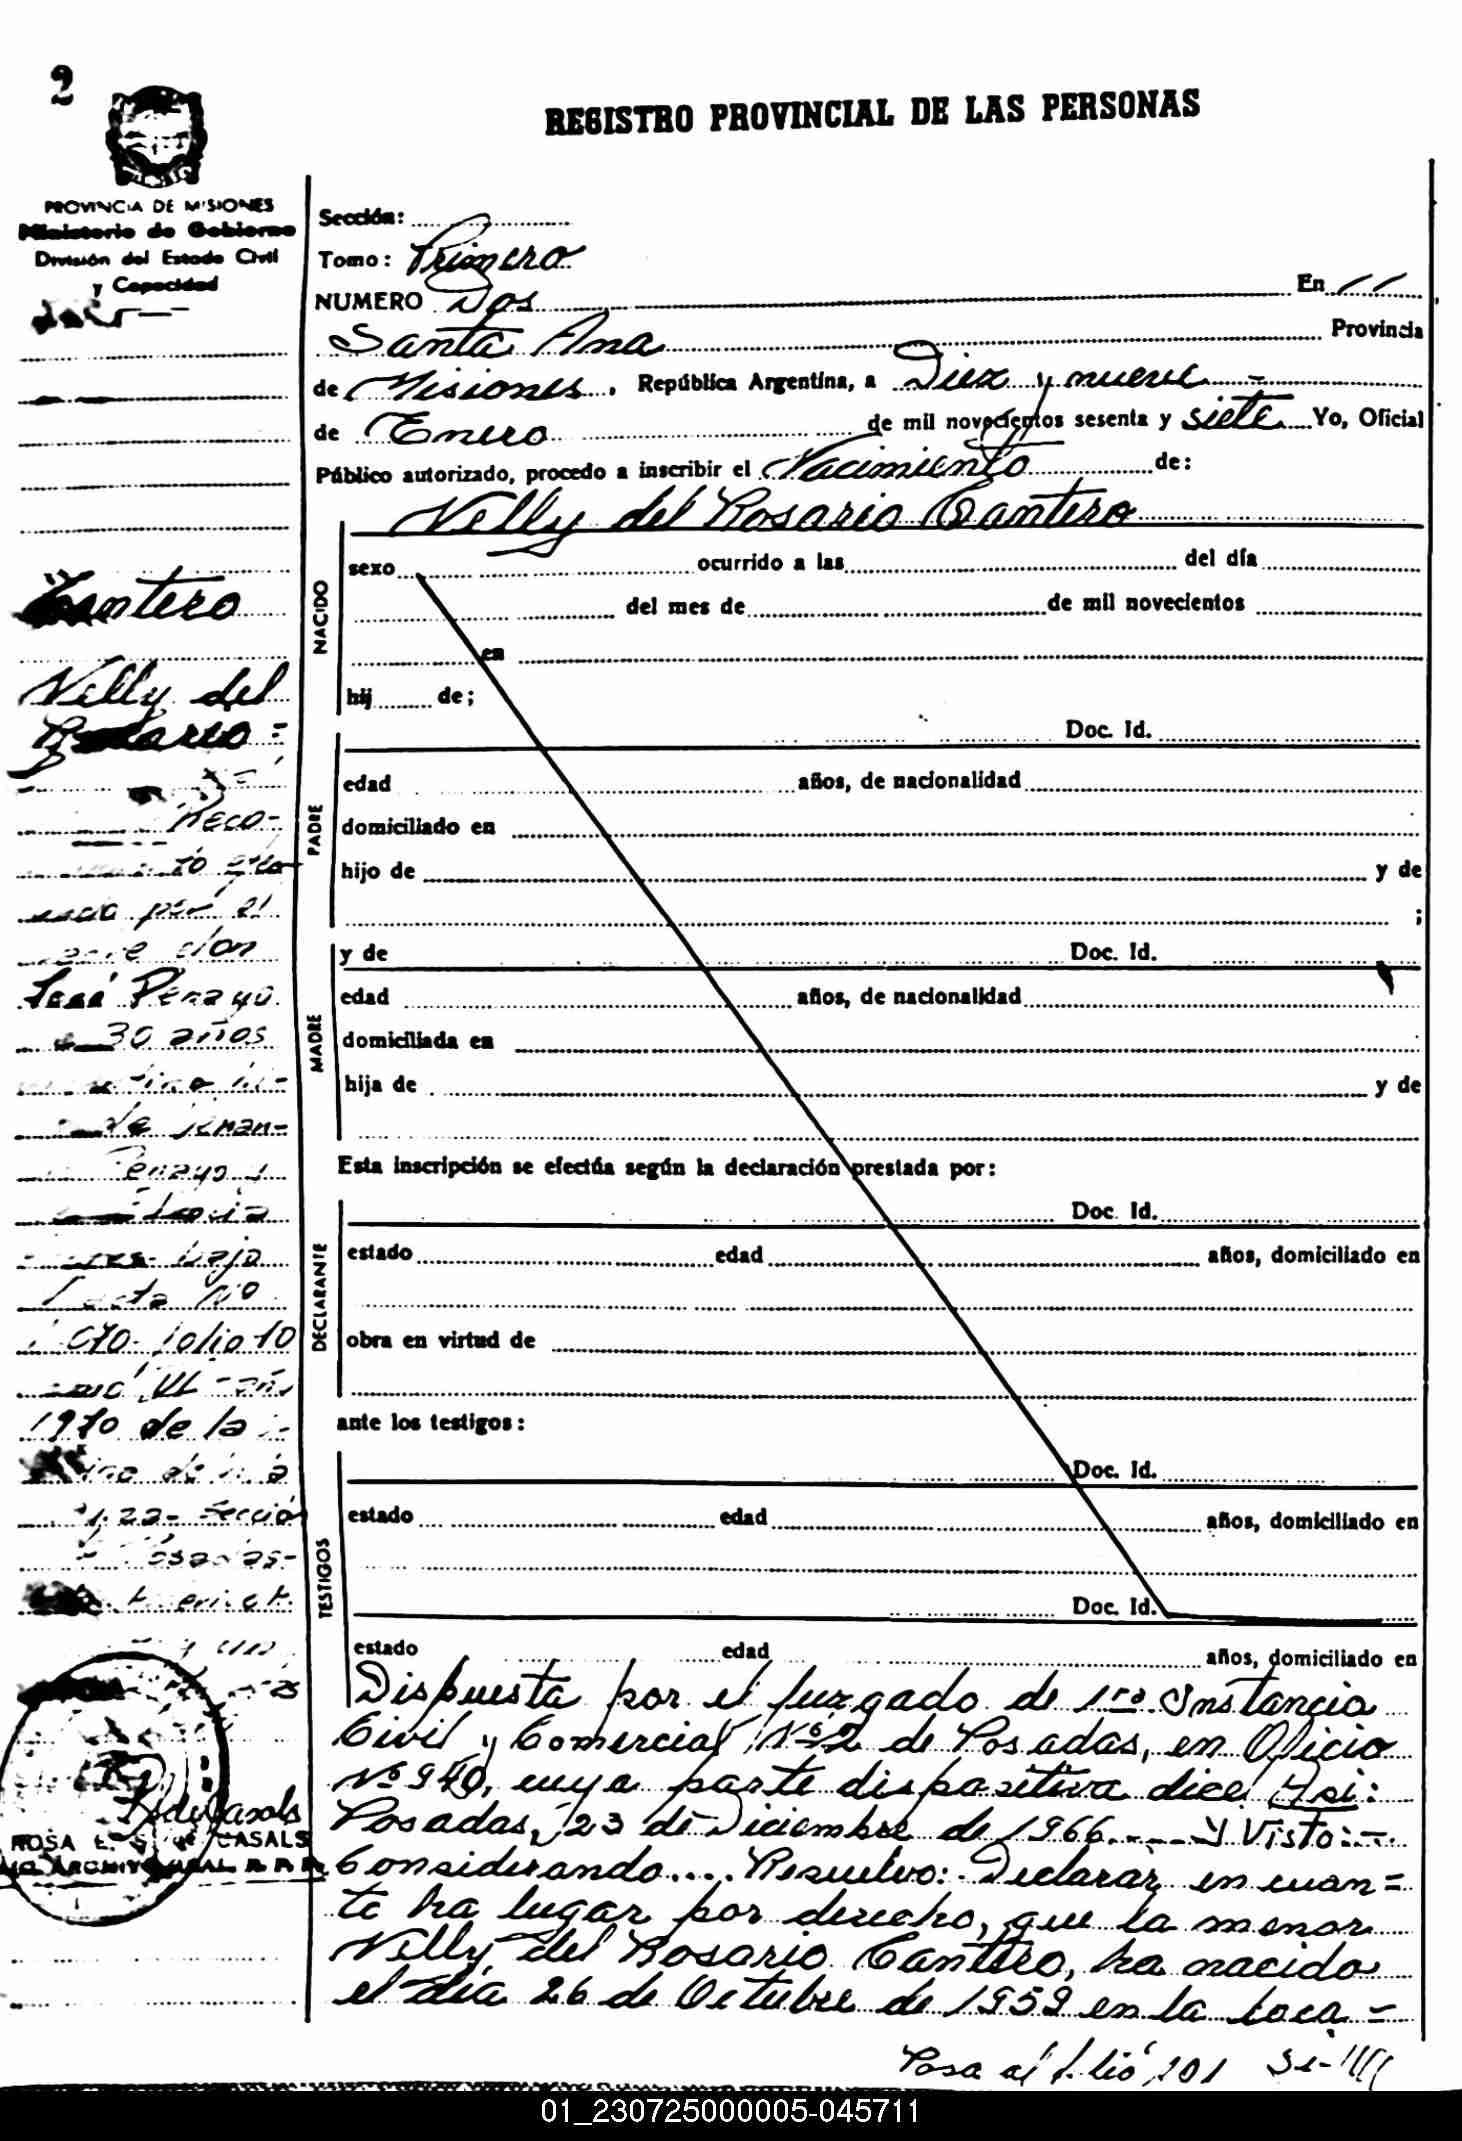 2
REGISTRO PROVINCIAL DE LAS PERSONAS
PROVINCIA DE MISIONES
Ministerio de Gobierno
División del Estado Civil
y Capacidad
Sección:
Tomo: Primero
NUMERO Dos En //
Santa Ana Provincia
de Misiones, República Argentina, a Diez y nueve -
de Enero de mil novecientos sesenta y siete Yo, Oficial
Público autorizado, procedo a inscribir el Nacimiento de:
Nelly del Rosario Cantero
NACIDO
sexo ocurrido a las del día
del mes de de mil novecientos
en
hij de;
PADRE
Doc. Id.
edad años, de nacionalidad
domiciliado en
hijo de y de
;
MADRE
y de Doc. Id.
edad años, de nacionalidad
domiciliada en
hija de y de
Esta inscripción se efectúa según la declaración prestada por:
DECLARANTE
Doc. Id.
estado edad años, domiciliado en
obra en virtud de
ante los testigos:
TESTIGOS
Doc. Id.
estado edad años, domiciliado en
Doc. Id.
estado edad años, domiciliado en
Dispuesta por el Juzgado de 1ra Instancia
Civil y Comercial Nº 2 de Posadas, en Oficio
Nº 940, cuya parte dispositiva dice Asi:
Posadas, 23 de Diciembre de 1966.---- Y Visto:-
Considerando.... Resuelvo: Declarar en cuan=
to ha lugar por derecho, que la menor
Nelly del Rosario Cantero, ha nacido
el día 26 de Octubre de 1959 en la loca=
Pasa al folio 201
Cantero
Nelly del
Rosario=
Reco-
por el
don
José Penayo
30 años
Penayo y
bajo
acta Nº
folio 10
1970 de la
Sección
Posadas-
ROSA E. S. de CASALS
ARCHIVO GRAL R P P
01_230725000005-045711